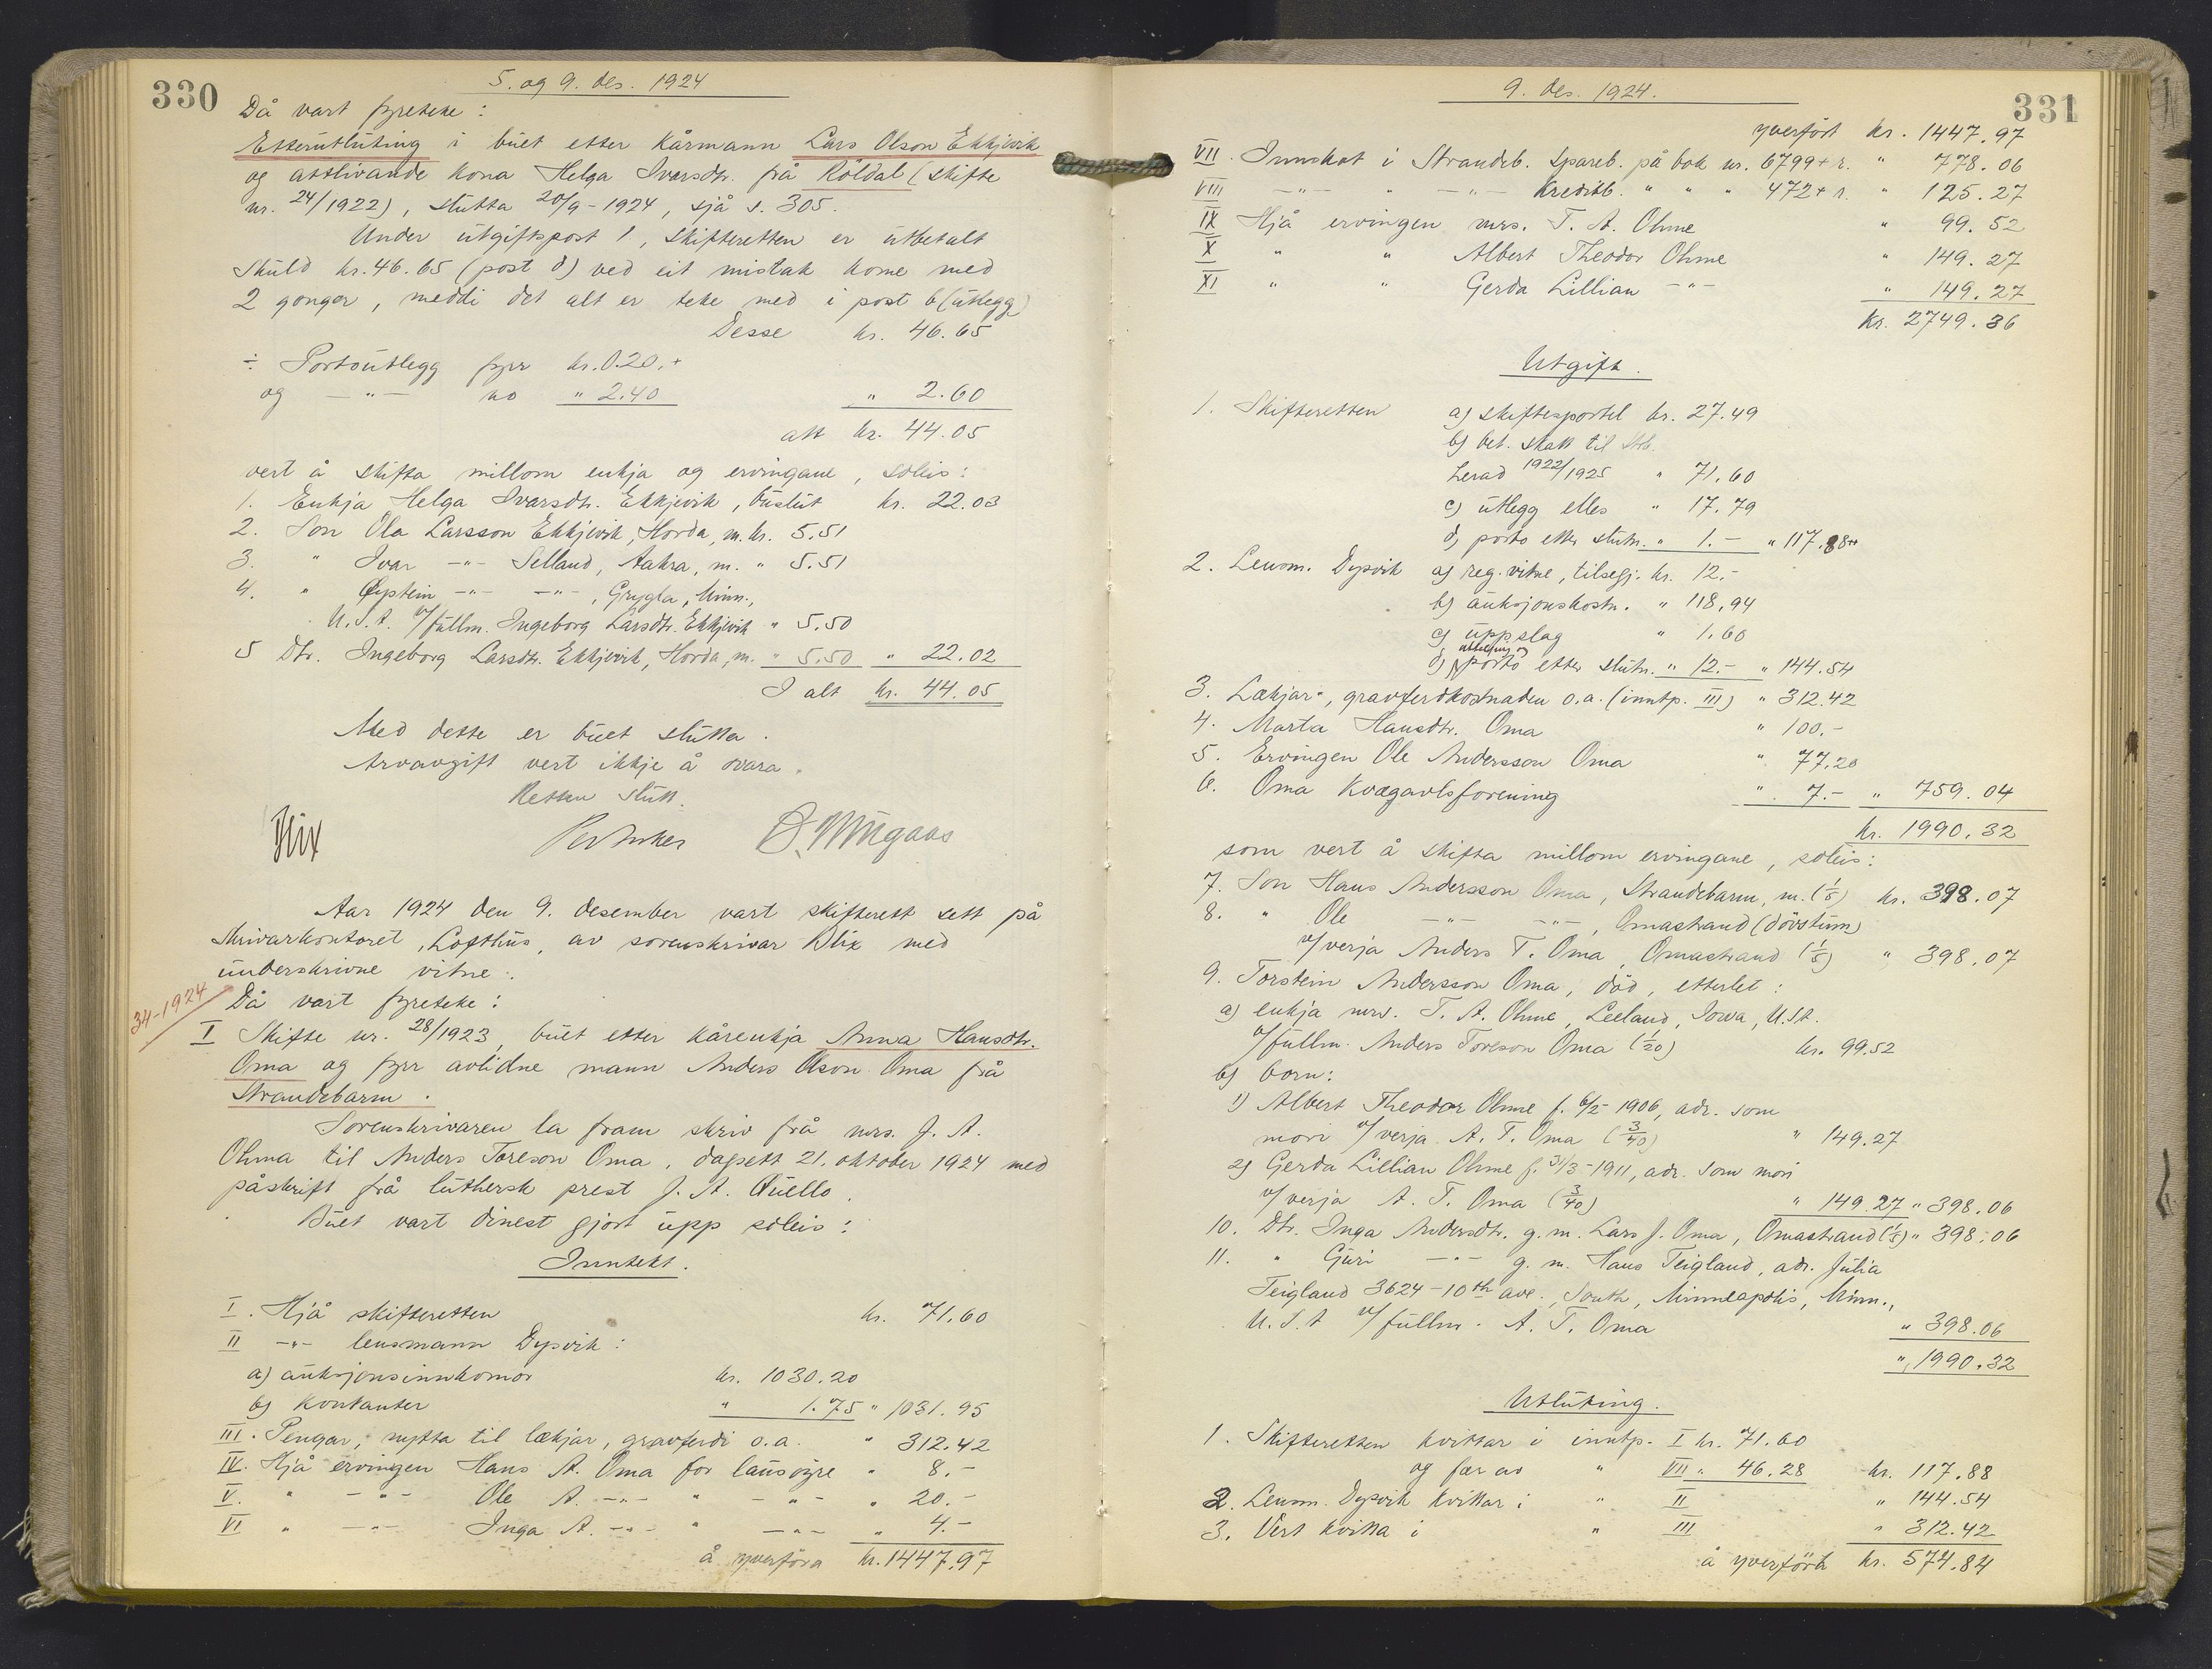 330
5. og 9. des. 1924
Då vart fyreteke:
Etterutluting i buet etter kårmann Lars Olson Ekkjevik
og attlivande kona Helga Ivarsdtr. frå Röldal (skifte
nr. 24/1922), slutta 20/9-1924, sjå s. 305.
Under utgiftspost 1, skifteretten er utbetalt
skuld kr. 46.65 (post d) ved eit mistak kome med
2 gonger, meddi det alt er teke med i post b (utlegg)
Desse kr. 46.65
÷ Portoutlegg fyrr kr. 0.20.+
og -"- no " 2.40 " 2.60
att kr. 44.05
vert å skifta millom enkja og ervingane, soleis:
1. Enkja Helga Ivarsdtr. Ekkjevik, buslut kr. 22.03
2. Son Ola Larsson Ekkjevik, Horda, m. kr. 5.51
3. " Ivar -"- Selland, Aakra, m. " 5.51
4. " Øystein -"- -"-, Grygla, Minn.,
U.S.A. v/fullm. Ingeborg Larsdtr. Ekkjevik " 5.50
5 Dtr. Ingeborg Larsdtr. Ekkjevik, Horda, m. " 5.50 " 22.02
I alt kr. 44.05
Med dette er buet slutta.
Arvavgift vert ikkje å svara.
Retten slutt.
Blix
Aar 1924 den 9. desember vart skifterett sett på
skrivarkontoret, Lofthus, av sorenskrivar Blix med
underskrivne vitne:
34-1924
Då vart fyreteke:
I Skifte nr. 28/1923, buet etter kårenkja Anna Hansdtr.
Oma og fyrr avlidne mann Anders Olson Oma frå
Strandebarm.
Sorenskrivaren la fram skriv frå mrs. J. A.
Ohma til Anders Toreson Oma, dagsett 21. oktober 1924 med
påskrift frå luthersk prest J. A. Quello.
Buet vart dinest gjort upp soleis:
Inntekt.
I. Hjå skifteretten kr. 71.60
II -"- lensmann Dysvik:
a) auksjonsinnkomor kr. 1030.20
b) kontanter " 1.75 " 1031.95
III. Pengar, nytta til lækjar, gravferdi o.a. " 312.42
IV. Hjå ervingen Hans A. Oma for lausöyre " 8.-
V. " -"- Ole A. -"- " -"- " 20.-
VI " -"- Inga A. -"- " -"- " 4.-
å yverföra kr. 1447.97
331
9. des. 1924.
yverfört kr. 1447.97
VII. Innskot i Strandeb. Spareb. på bok nr. 6799+r. " 778.06
VIII -"- " -"- Kreditb. " " " 472+r. " 125.27
IX Hjå ervingen mrs. T. A. Ohme " 99.52
X " " Albert Theodor Ohme " 149.27
XI " " Gerda Lillian -"- " 149.27
Kr. 2749.36
Utgift.
1. Skifteretten a) skiftesportel kr. 27.49
b) bet. skatt til Stb.
herad 1922/1925 " 71.60
c) utlegg elles " 17.79
d) porto etter slutn. " 1.- " 117.88++
2. Lensm. Dysvik a) reg. vitne, tilsegj. kr. 12.-
b) auksjonskostn. " 118.94
c) uppslag " 1.60
d) porto etter slutn. " 12.- " 144.54
3. Lækjar-, gravferdkostnaden o.a. (inntp. III) " 312.42
4. Marta Hansdtr. Oma " 100.-
5. Ervingen Ole Andersson Oma " 77.20
6. Oma Kvægavlsforening " 7.- " 759.04
kr. 1990.32
som vert å skifta millom ervingane, soleis:
7. Son Hans Andersson Oma, Strandebarm, m. (1/5) kr. 398.07
8. " Ole -"- -"-, Omastrand (dövstum)
v/verja Anders T. Oma, Omastrand (1/5) " 398.07
9. Torstein Andersson Oma, död, etterlet:
a) enkja mrs. T. A. Ohme, Leeland, Iowa, U.S.A.
v/fullm. Anders Toreson Oma (1/20) kr. 99.52
b) born:
1) Albert Theodor Ohme f. 6/5 1906, adr. som
mori v/verja A. T. Oma (3/40) " 149.27
2) Gerda Lillian Ohme f. 31/3-1911, adr. som mori
v/verja A. T. Oma (3/40) " 149.27 " 398.06
10. Dtr. Inga Andersdtr. g. m. Lars J. Oma, Omastrand (1/5) " 398.06
11. " Guri -"- g. m. Hans Teigland, adr. Julia
Teigland 3624-10th ave., South, Minneapolis, Minn.,
U.S.A v/fullm. A. T. Oma " 398.06
" 1990.32
Utluting.
1. Skifteretten kvittar i inntp. I kr. 71.60
og fær av " VII " 46.28 kr. 117.88
2. Lensm. Dysvik kvittar i " II " 144.54
3. Vert kvitta i " III " 312.42
å yverföra kr. 574.84